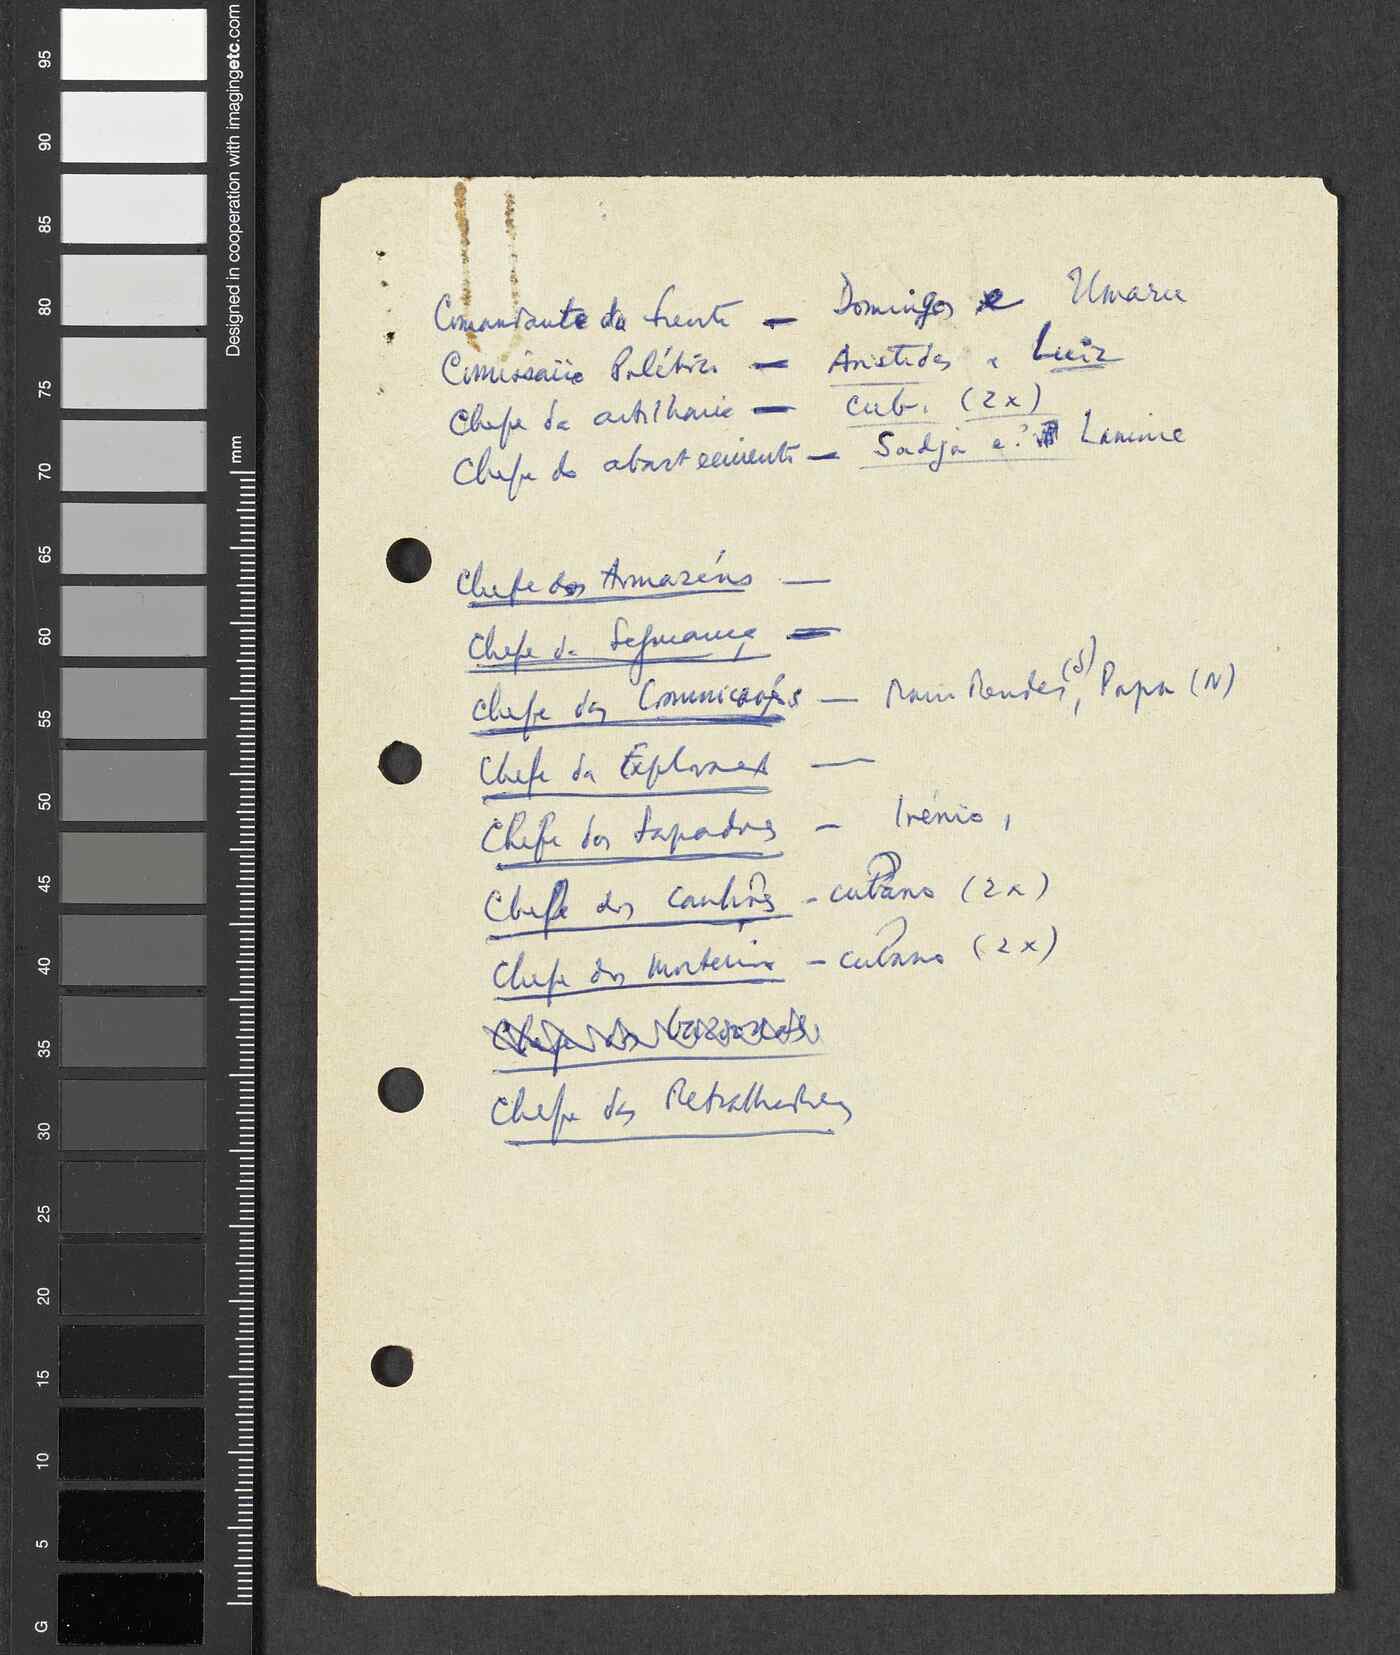 Comandante da frente — Domingos e Umaru
Comissário Político — Aristides e Luiz
Chefe da artilharia — cub. (2x)
Chefe do abastecimento — Sadjá e Lamine
Chefe dos Armazéns —
Chefe da Segurança —
Chefe das Comunicações — Mendes (S), Papa (N)
Chefe da —
Chefe dos Sapadores — Irénio,
Chefe dos Canhões - cubano (2x)
Chefe dos Morteiros - cubano (2x)
Chefe das
Chefe das Metralhadoras
Designed in cooperation with imagingetc.com
mm
95
90
85
80
75
70
65
60
55
50
45
40
35
30
25
20
15
10
5
G